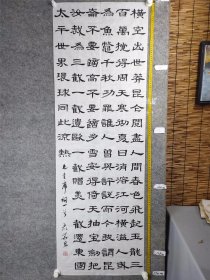 橫空出世莽昆侖閱盡人間春色飛起玉龍三
百萬攪得周天寒徹夏日消溶江河橫溢人或
為魚鱉千秋功罪誰人曾與評說而今我謂昆
侖不要這高不要這多雪安得倚天抽寶劍把
汝裁為三截一截遺歐一截贈美一截還東國
太平世界環球同此涼熱
毛主席詞